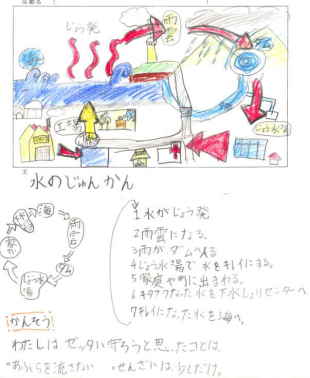 じょう発
雨雲
ダム
工場
じょう水場
水のじゅんかん
海
雨雲
ダム
じょう水場
1 水がじょう発
2 雨雲になる。
3 雨がダムへ入る
4 じょう水場で水をキレイにする。
5 家庭や町に出まわる。
6 キタナクなった水を下水しょりセンターへ
7 キレイになった水を海へ。
かんそう
わたしはゼッタイ守ろうと思ったコトは、
・あぶらを流さない ・せんざいは少しだけ。